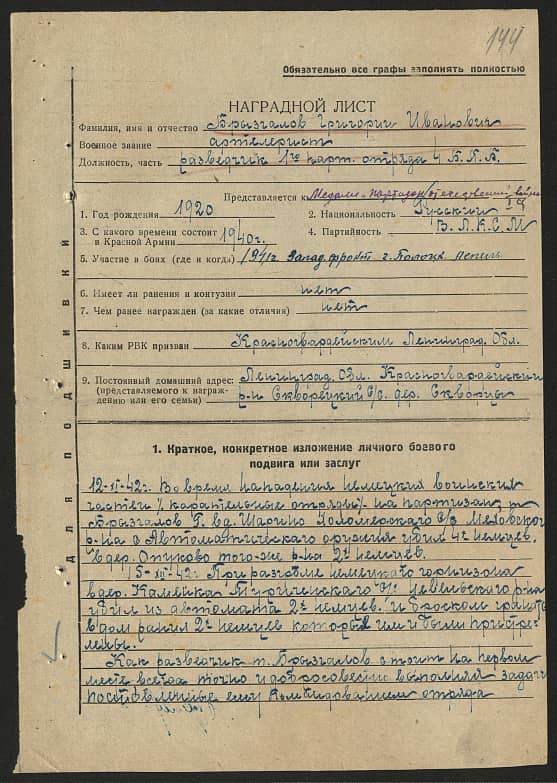 144
Обязательно все графы заполнять полностью
НАГРАДНОЙ ЛИСТ
Фамилия, имя и отчество Брызгалов Григорий Иванович
Военное звание артелерист
Должность, часть разведчик 1го парт. отряда 4 Б.П.Б.
Представляется к Медали "партизан отечественной войны I ст
1. Год рождения 1920
2. Национальность Русский
3. С какого времени состоит в Красной Армии 1940г.
4. Партийность В.Л.К.С.М
5. Участие в боях (где и когда) 1941г Запад. фронт г. Полоцк Лепель
6. Имеет ли ранения и контузии нет
7. Чем ранее награжден (за какие отличия) нет
8. Каким РВК призван Красногвардейским Ленинград. Обл.
9. Постоянный домашний адрес: Ленинград. Обл. Красногвардейский
(представляемого к награждению или его семьи) р-н Скворецкий с/с. дер. Скворцы
Для подшивки
1. Краткое, конкретное изложение личного боевого
подвига или заслуг
12-XI-42г. Во время нападения немецких воинских
частей / карательные отряды / на партизан, т.
Брызгалов Г. в д. Шарино с/с Меховского
р-на с Автоматического оружия убил 4х немцев.
В дер. того-же р-на 2х немцев.
15-XII-42г При разгроме немецкаго горнизона
в дер. Каменка Туричинского с/с Невельского р-на
убил из автомата 2х немцев. и броском гранаты
в дом ранил 2х немцев которые им и были пристре-
лены.
Как разведчик т. Брызгалов стоит на первом
месте всегда точно и добросовестно выполнял задачи
поставленные ему Командованием отряда